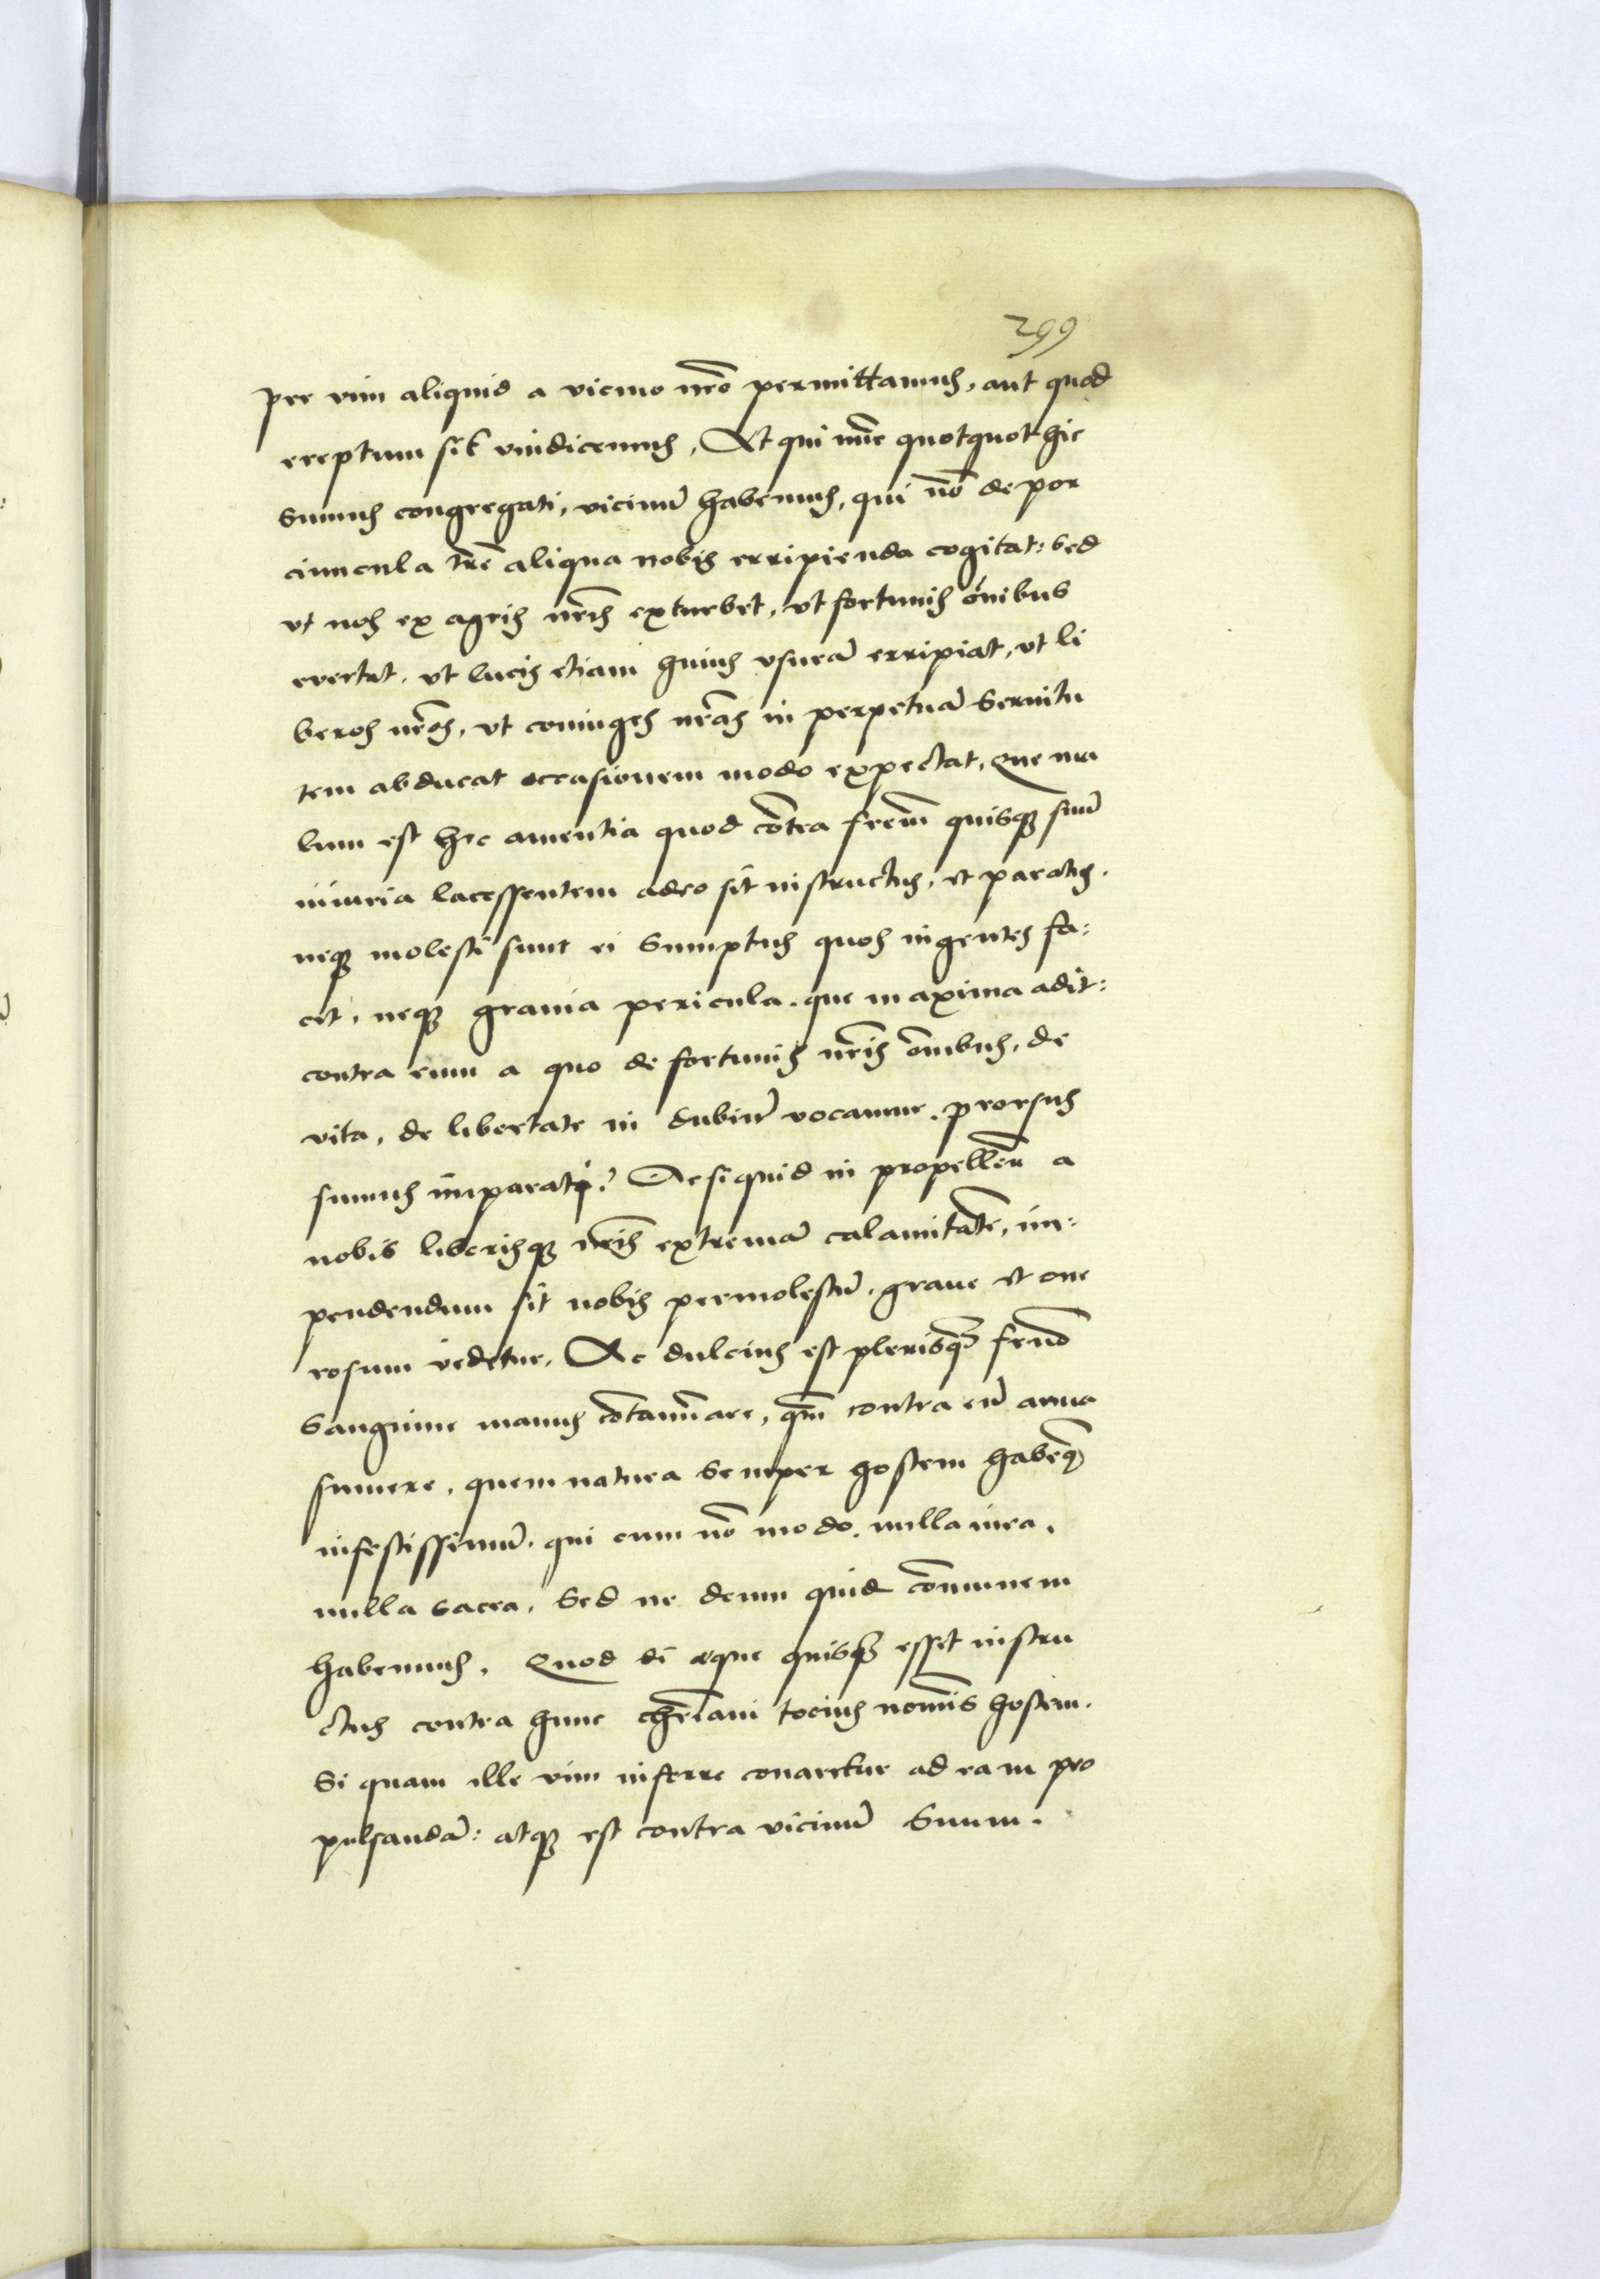 299
per vim aliquid a vicino nr̄o permittamus, aut quod
ereptum sit vindicemus, At qui nūc quotquot hic
Sumus congregati, vicinū habemus, qui nō de por
ciuncula tr̄e aliqua nobis erripienda cogitat: Sed
vt nos ex agris nr̄is exturbet, vt fortunis ōnibus
evertat, vt lucis etiam huius vsurā erripiat, vt li
beros nr̄os, vt coniuges nr̄as in perpetuā Seruitu
tem abducat occasionem modo expectat, Que ma
lum est hec amentia quod cōtra fr̄em quisq3 suū
iniuria lacessentem adeo sit instructus, et paratus.
neq3 molesti sunt ei Sumptus quos ingentes fa:
cit, neq3 grauia pericula. que maxima adit:
contra eum a quo de fortunis nr̄is ōmibus, de
vita, de libertate in dubiū vocamur. prorsus
sumus imparati? Ac si quid in propellēn a
nobis liberisq3 nr̄is extremā calamitatē, im:
pendendum sit nobis permolestū, graue et one
rosum videtur, Ac dulcius est plerisq3 fr̄no
Sanguine manus cōtaminare, qm̄ contra eū arma
sumere, quem natura Semper hostem habem9
infestissimū, qui cum nō modo, nulla iura,
nulla sacra, Sed ne deum quid cōmunem
habemus. Quod si eque quisq3 esset instru
ctus contra hunc chr̄iani tocius nom̄is hostem.
Si quam ille vim inferre conaretur ad eam pro
pulsandā: atq3 est contra vicinū Suum.